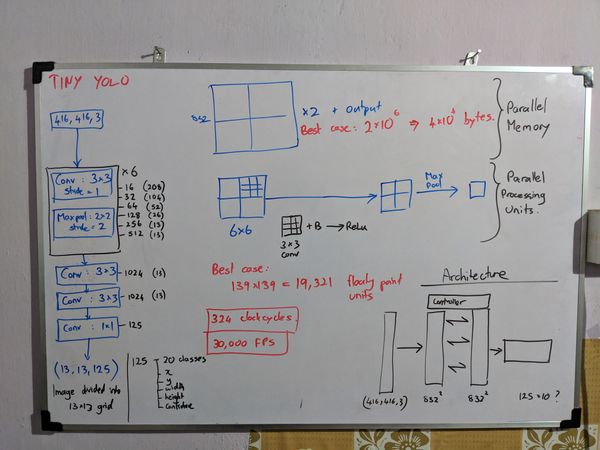 TINY YOLO
416, 416, 3
×6
Conv : 3×3
Stride = 1
Maxpool : 2×2
stride = 2
16 (208)
32 (104)
64 (52)
128 (26)
256 (13)
512 (13)
Conv : 3×3
1024 (13)
Conv : 3×3
1024 (13)
Conv : 1×1
125
(13, 13, 125)
Image divided into
13×13 grid
125
20 classes
x
y
width
height
confidence
832
×2 + output
Best case: 2×10⁶ ⇒ 4×10⁴ bytes.
Parallel
Memory
6×6
3×3
conv
+ B → Relu
Max
Pool
Parallel
Processing
Units.
Best case:
139×139 = 19,321 floating point
units
324 clock cycles
30,000 FPS
Architecture
Controller
(416,416,3)
832²
832²
125×10 ?